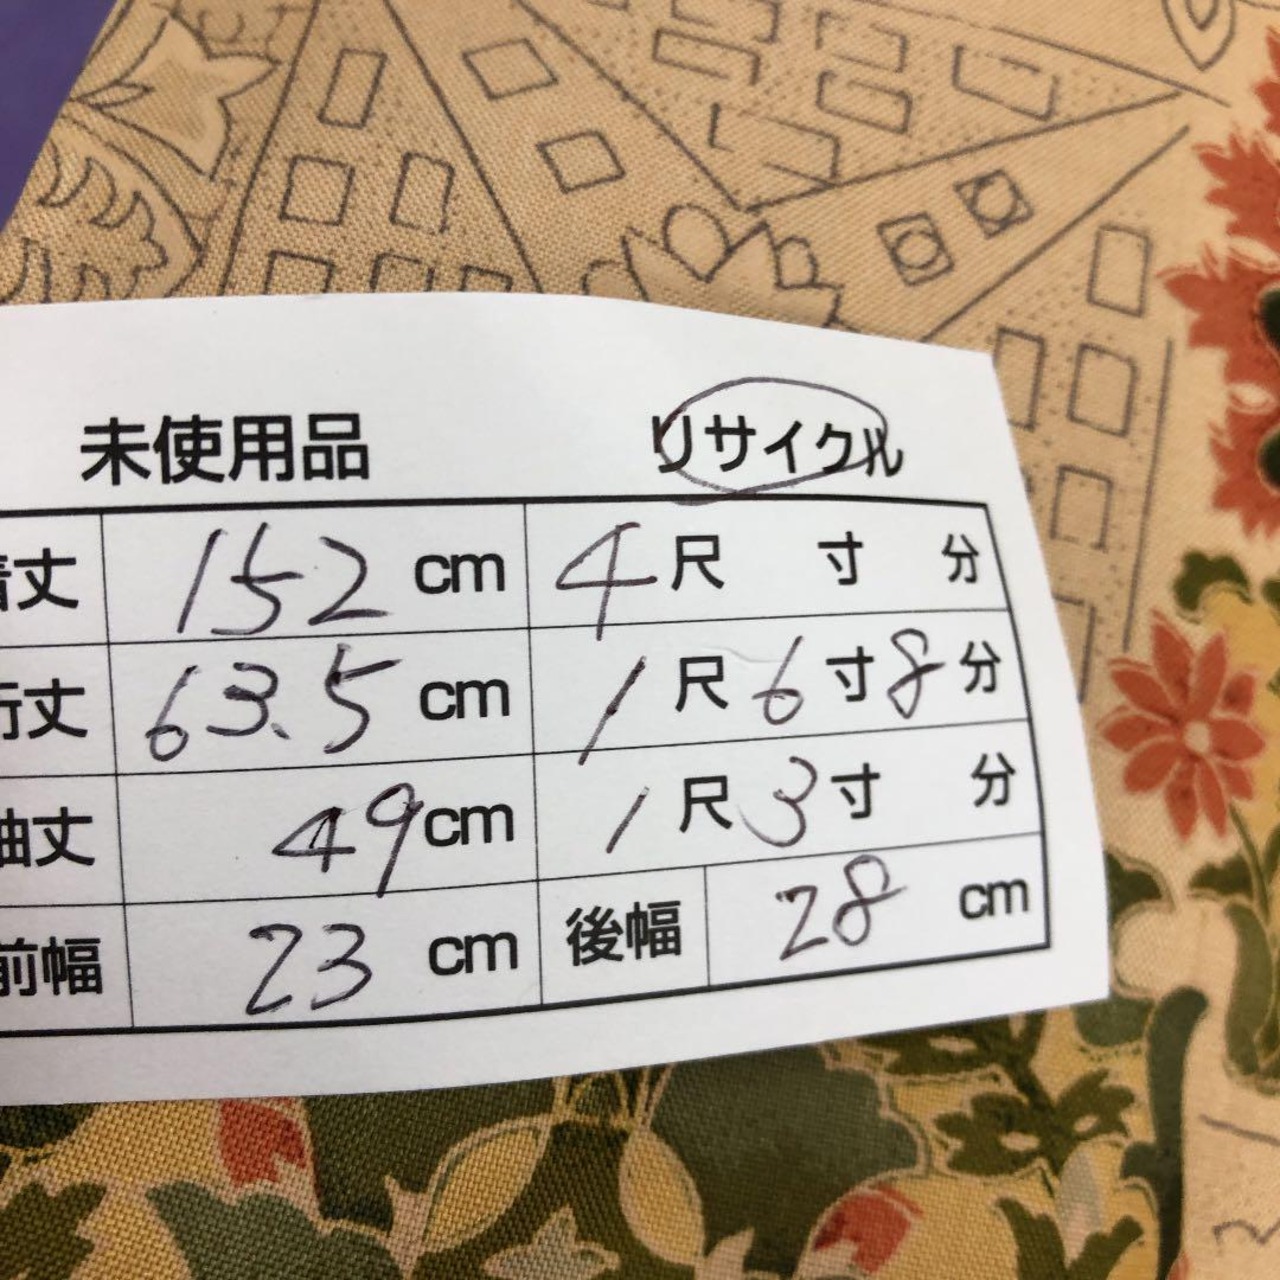 未使用品 リサイクル
着丈 152 cm 4尺 寸 分
裄丈 63.5 cm 1尺6寸8分
袖丈 49cm 1尺3寸 分
前幅 23 cm 後幅 28 cm